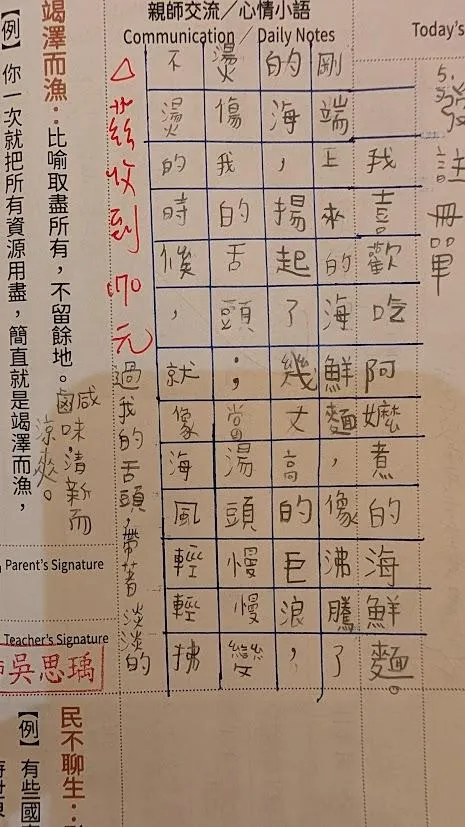 親師交流／心情小語
Communication / Daily Notes
Today's
5. 發註冊單
我喜歡吃阿嬤煮的海鮮麵。
剛端上來的海鮮麵，像沸騰了
的海，揚起了幾丈高的巨浪，
燙傷我的舌頭；當湯頭慢慢變
不燙的時候，就像海風輕輕拂
過我的舌頭，帶著淡淡的
鹹味，清新而
涼爽。
△茲收到170元
竭澤而漁：比喻取盡所有，不留餘地。
【例】你一次就把所有資源用盡，簡直就是竭澤而漁，
Parent's Signature
Teacher's Signature
師吳思瑀
民不聊生：
【例】有些國